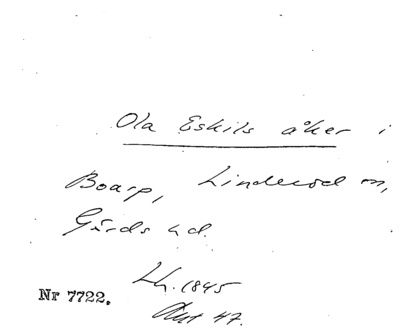 Ola Eskils åker i
Boarp, Linderöd sn,
Gärds hd.
Lh. 1845
Akt 47.
Nr 7722.